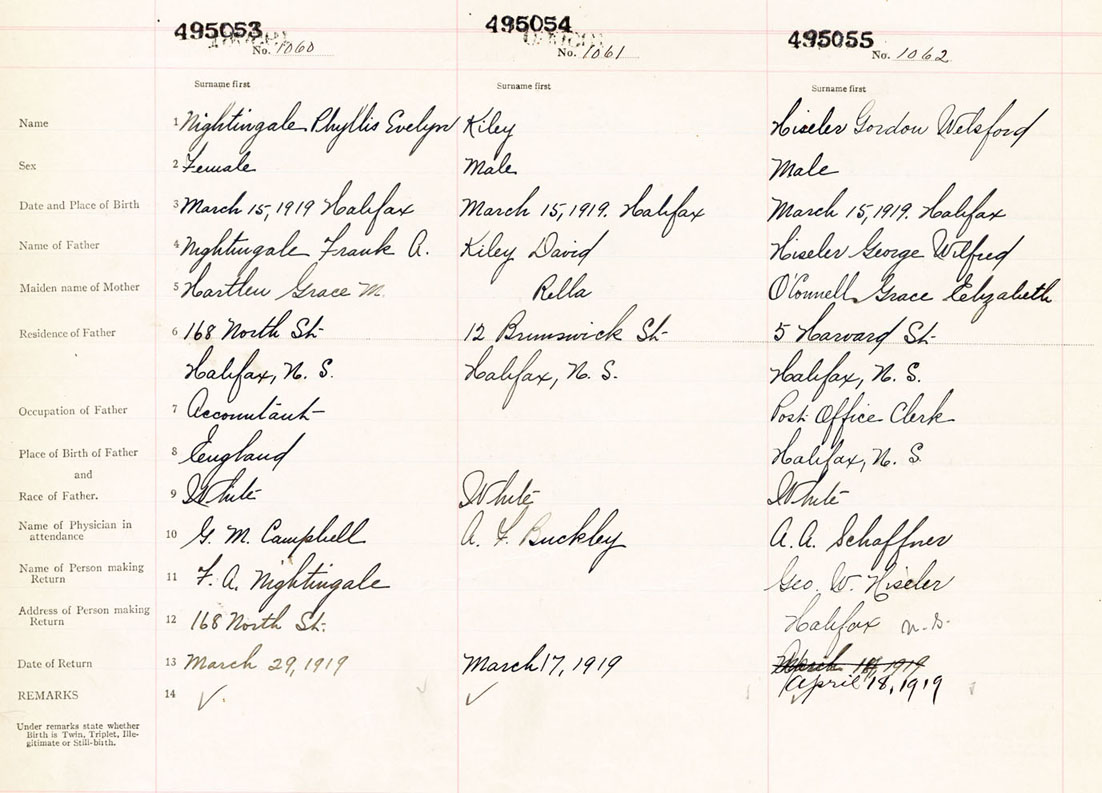 495053 495054 495055
No. 1060 No. 1061 No. 1062
Surname first Surname first Surname first
Name 1 Nightingale Phyllis Evelyn Kiley Hiseler Gordon Welsford
Sex 2 Female Male Male
Date and Place of Birth 3 March 15, 1919 Halifax March 15, 1919. Halifax March 15, 1919. Halifax
Name of Father 4 Nightingale Frank A. Kiley David Hiseler George Wilfred
Maiden name of Mother 5 Hartlen Grace M. Rella O'Connell Grace Elizabeth
Residence of Father 6 168 North St. 12 Brunswick St. 5 Harvard St.
Halifax, N. S. Halifax, N. S. Halifax, N. S.
Occupation of Father 7 Accountant Post Office Clerk
Place of Birth of Father 8 England Halifax, N. S.
and
Race of Father. 9 White White White
Name of Physician in
attendance 10 G. M. Campbell A. F. Buckley A. A. Schaffner
Name of Person making
Return 11 F. A. Nightingale Geo. W. Hiseler
Address of Person making
Return 12 168 North St. Halifax N.S.
Date of Return 13 March 29, 1919 March 17, 1919 March 18, 1919
April 18, 1919
REMARKS 14
Under remarks state whether
Birth is Twin, Triplet, Ille-
gitimate or Still-birth.